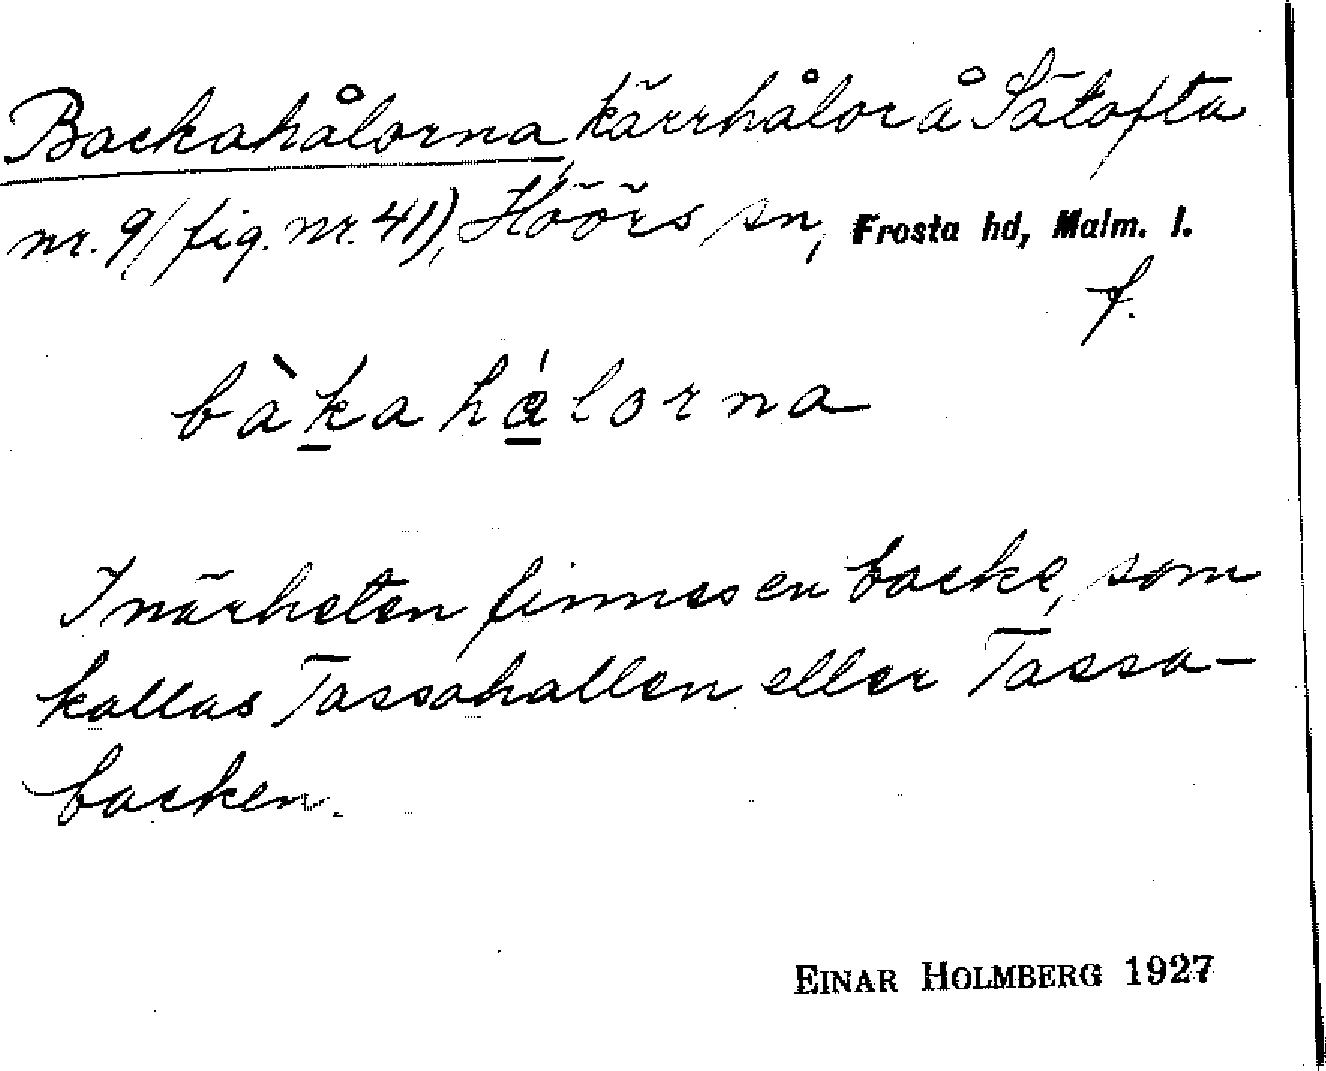 Backahålorna, kärrhålor å Sätofta
nr. 9 (fig. nr. 41), Höörs sn, Frosta hd, Malm. l.
f.
bàkahálorna
I närheten finnes en backe, som
kallas Tassahallen eller Tassa-
backen.
EINAR HOLMBERG 1927